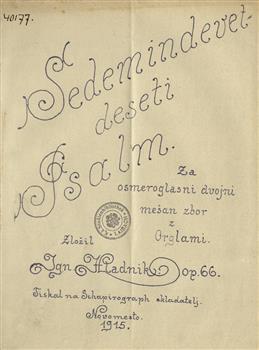 40177.
Sedemindevet-
deseti
Psalm.
Za
osmeroglasni dvojni
mešan zbor
z
Orglami.
Zložil
Ign Hladnik op. 66.
Tiskal na Schapirograph skladatelj.
Novomesto.
1915.